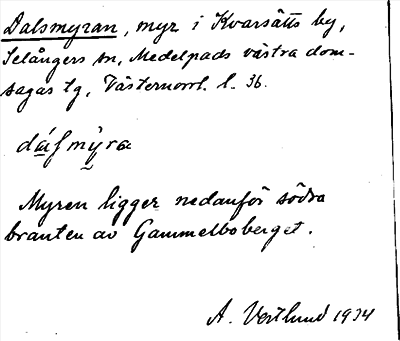 Dalsmyran, myr i Kvarsätts by,
Selångers sn, Medelpads västra dom-
sagas tg, Västernorrl. l. 36.
Myren ligger nedanför södra
branten av Gammelboberget.
A. Vestlund 1934